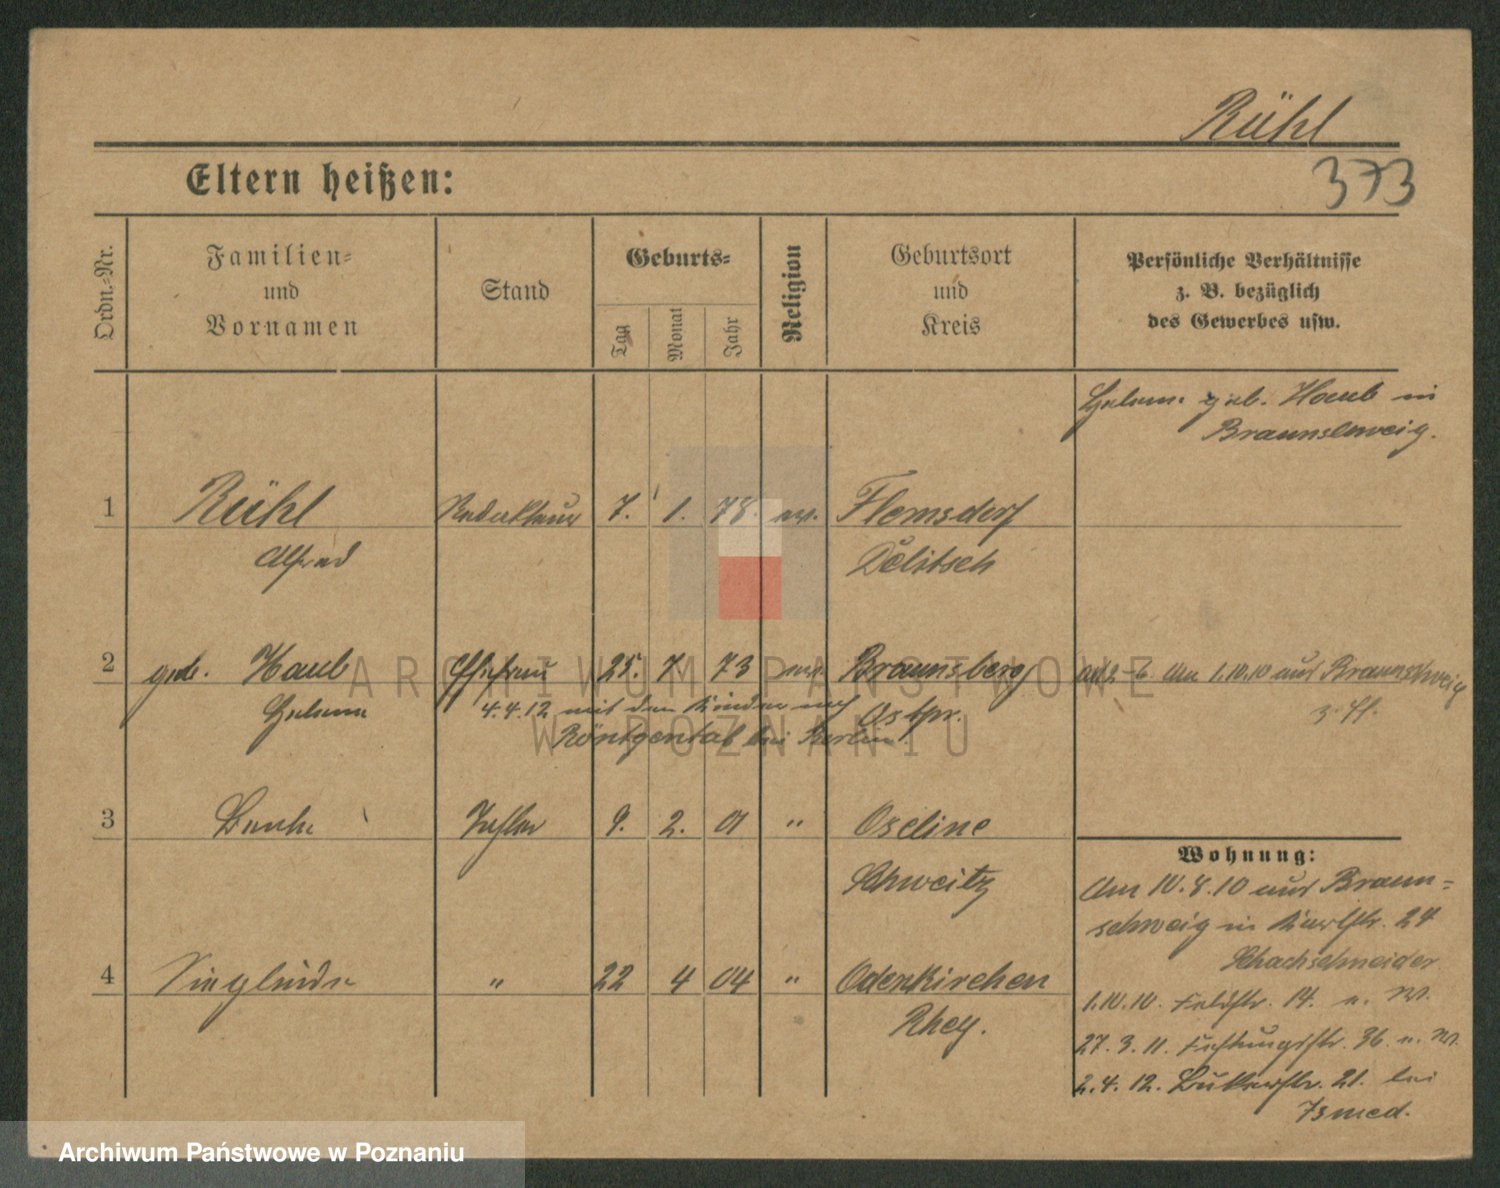 Rühl
373
Eltern heißen:
Ordn.=Nr.
Familien=
und
Vornamen
Stand
Geburts=
Tag
Monat
Jahr
Religion
Geburtsort
und
Kreis
Persönliche Verhältnisse
z. B. bezüglich
des Gewerbes usw.
geb. Haub in
Braunschweig.
1 Rühl Redakteur 7. 1. 78. ev. Flemsdorf
Alfred Delitsch
2 geb. Haub Ehefrau 25. 7. 73 Braunsberg
Helene Ostpr.
ad 2-6 am 1.10.10 aus Braunschweig
z. Ff.
4.4.12 mit den Kindern nach
Röntgental bei Berlin.
3 Tochter 9. 2. 01 "
Schweitz
4 Sieglinde " 22 4 04 " Odenkirchen
Rhey.
Wohnung:
Am 10.8.10 aus Braun=
schweig in 24
Schachschneider
1.10.10. Feldstr. 14. n. W.
27.3.11. Festungsstr. 36. n. W.
2.4.12. 21. bei
Ismed.
ARCHIWUM PAŃSTWOWE
W POZNANIU
Archiwum Państwowe w Poznaniu